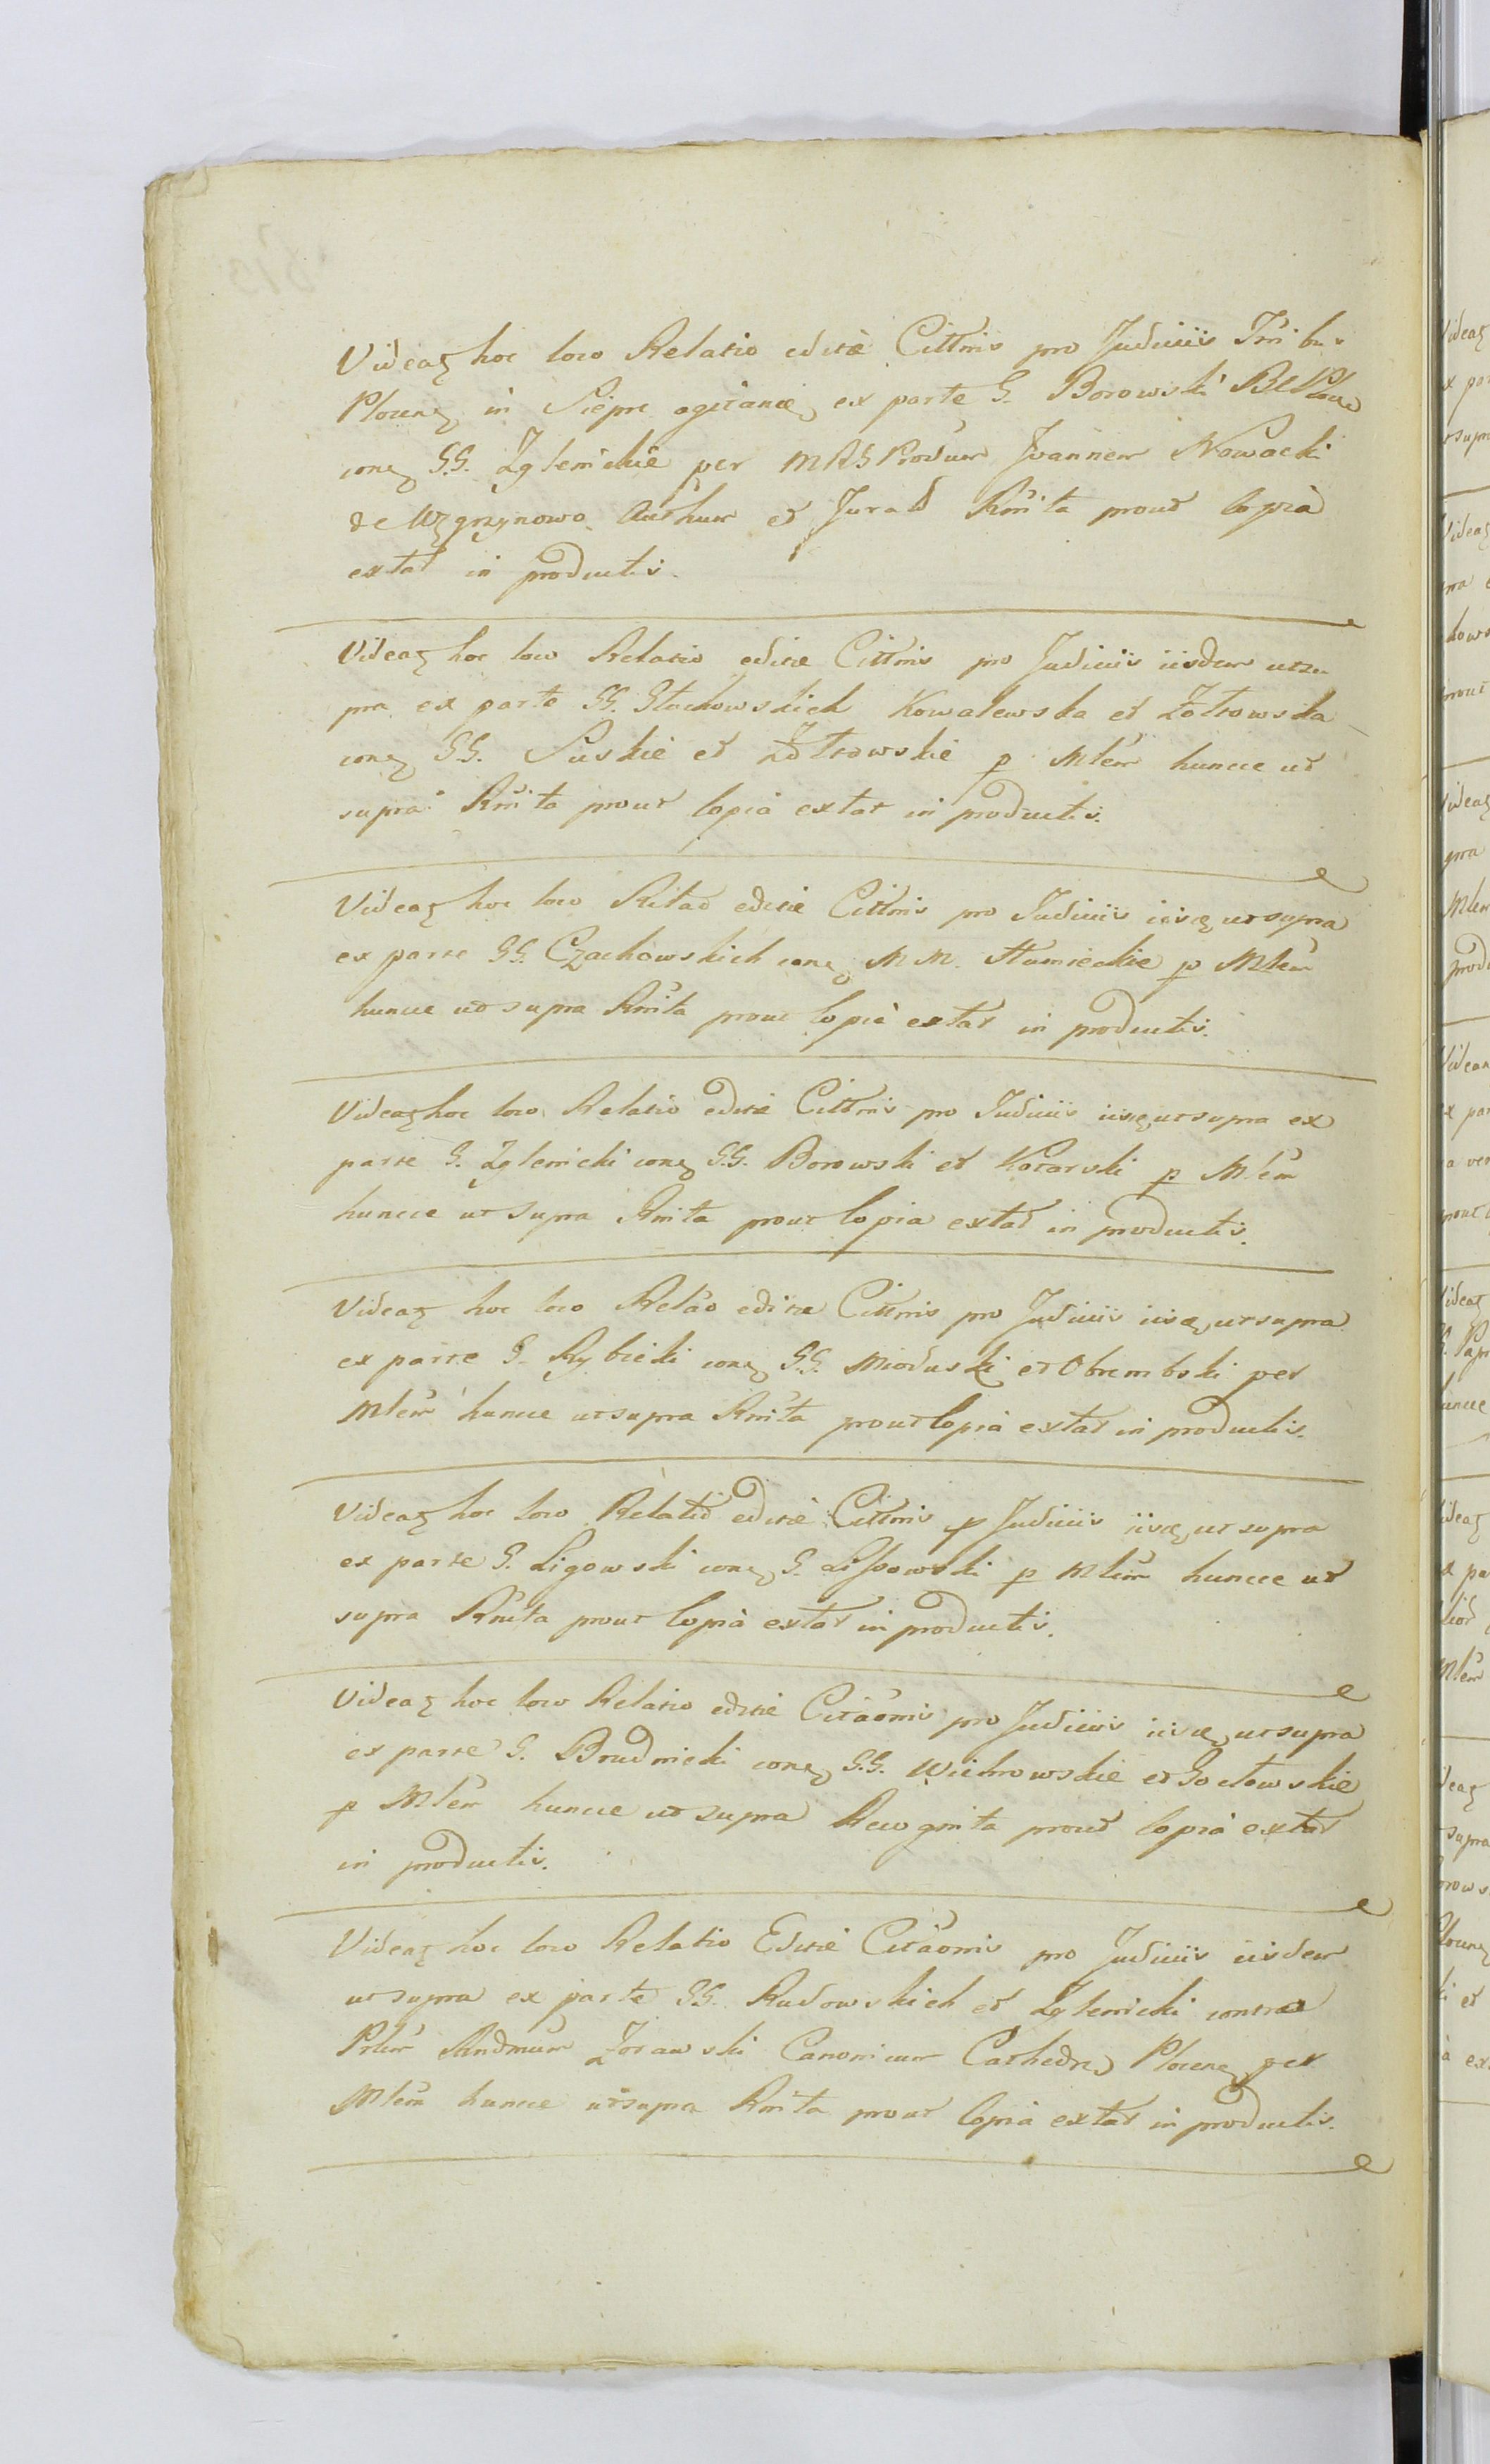 Videaꝫ hoc loco Relatio editæ Cittnis pro Judiciis Trribus
Plocenꝫ in Siepre agitandꝫ ex parte G. Borowski
conꝫ GG. Zglenickie per MRS Prodũ Joannem Nowacki
de Węgrzynowo Authum et Jurat Rnita prout Copia
extat in productis.
Videaꝫ hoc loco Relatio editæ Cittnis pro Judiciis iisdem utsu
pra ex parte GG. Stachowskich Kowalewska et Żółtowska
conꝫ GG. Suskie et Żółtowskie p Mlem huncce ut
supra Rnita prout Copia extat in productis.
Videaꝫ hoc loco Rltao editæ Cittnis pro Judiciis iisꝫ utsupra
ex parte GG. Czachowskich conꝫ MM. Humieckie p Mlem
huncce ut supra Rnita prout Copia extat in productis.
Videaꝫ hoc loco Relatio editæ Cittnis pro Judiciis iisꝫ utsupra ex
parte G. Zglenicki conꝫ GG. Borowski et Kotarski p Mlem
huncce ut supra Rnita prout Copia extat in productis.
Videaꝫ hoc loco Relao editæ Cittnis pro Judiciis iisꝫ utsupra
ex parte G. Rybicki conꝫ GG. Mioduski et Obrembski per
Mlem huncce utsupra Rnita prout Copia extat in productis.
Videaꝫ hoc loco Relatio editæ Cittnis p Judiciis iisꝫ ut supra
ex parte G. Ligowski conꝫ G. Lissowski p Mlem huncce ut
supra Rnita prout Copia extat in productis.
Videaꝫ hoc loco Relatio editæ Citaonis pro Judiciis iisꝫ utsupra
ex parte G. Brudnicki conꝫ GG. Wichrowskie et Gocłowskie
p Mlem huncce ut supra Recognita prout Copia extat
in productis.
Videaꝫ hoc loco Relatio Editæ Citaonis pro Judiciis iisdem
ut supra ex parte GG. Rudowskich et Zglenicki contra
Prlem Rndmum Żorawski Canonicum Cathedrꝫ Plocenꝫ per
Mlem huncce utsupra Rnita prout Copia extat in productis.